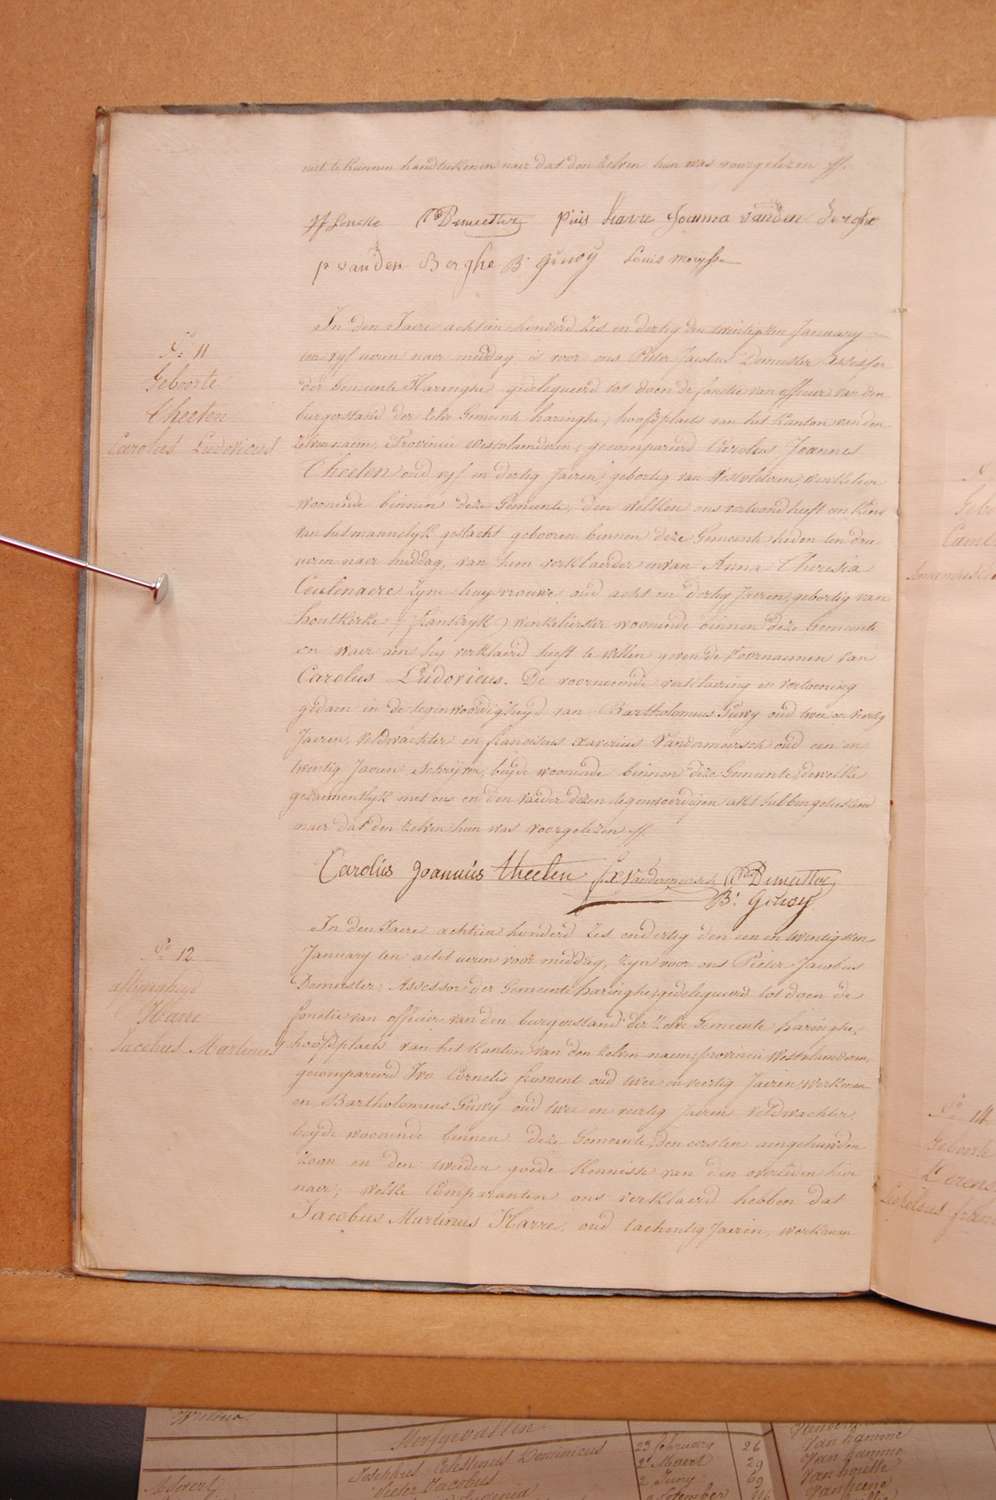 niet te kunnen handteekenen naer dat den zelven hun was voorgelezen ff.
PDemeester Pius Harre Joanna vanden Berghe
p vanden Berghe B. Guwÿ Louis
N.º 11
Geboorte
Theeten
Carolus Ludovicus
In den Jaere achtien honderd zes en dertig den twintigsten January
ten vyf ueren naer middag is voor ons Pieter Jacobus Demeester Assessor
der Gemeente Haringhe gedelegueerd tot doen de fonctie van officier van den
burgerstand der zelve Gemeente haringhe, hoofdplaets van het Kanton van den
zelven naem, Provincie Westvlanderen; gecompareerd Carolus Joannes
Theeten oud vyf en dertig Jaeren, gebortig van Westvleteren winkelier
woonende binnen deze Gemeente, den welken ons vertoond heeft een kind
van het mannelyk geslacht gebooren binnen deze Gemeente heden ten drie
ueren naer middag, van hem verklaerder en van Anna Theresia
Ceulenaere zyne huysvrouwe oud acht en dertig Jaeren, gebortig van
houtkerke (frankryk) winkelierster woonende binnen deze Gemeente
en waer aen hy verklaerd heeft te willen geven de voornaemen van
Carolus Ludovicus. De voornoemde verklaering en vertooning
gedaen in de tegenwoordigheyd van Bartholomeus Guwy oud twee en veertig
Jaeren, veldwachter en franciscus xaverius Vandermeersch oud een en
twintig Jaeren schryver, beyde woonende binnen deze Gemeente, dewelke
gezaementlyk met ons en den vader dezen tegenwoordigen akt hebben geteekend
naer dat den zelven hun was voorgelezen ff.
Carolus Joannes theeten fx Vandermeersch PDemeester
B. Guwy
N.º 12
aflyvigheyd
Harre
Jacobus Martinus
In den Jaere achtien honderd zes en dertig den een en twintigsten
January ten acht ueren voor middag, zyn voor ons Pieter Jacobus
Demeester, Assessor der Gemeente haringhe, gedelegueerd tot doen de
fonctie van officier van den burgerstand der zelve Gemeente haringhe,
hoofdplaets van het Kanton van den zelven naem, provincie Westvlanderen,
gecompareerd Ivo Cornelis oud twee en veertig Jaeren, werkman
en Bartholomeus Guwy oud twee en veertig Jaeren veldwachter
beyde woonende binnen deze Gemeente, den eersten aengehuwden
zoon en den tweeden goede Kennisse van den overleden hier
naer, welke Comparanten ons verklaerd hebben dat
Jacobus Martinus Harre, oud tachentig Jaeren, werkman
N.º 14
Geboorte
Joséphus Célestinus Dominicus
Pieter Jacobus
23 february 26
2 Maert 29
2 Juny 69
Van hamme